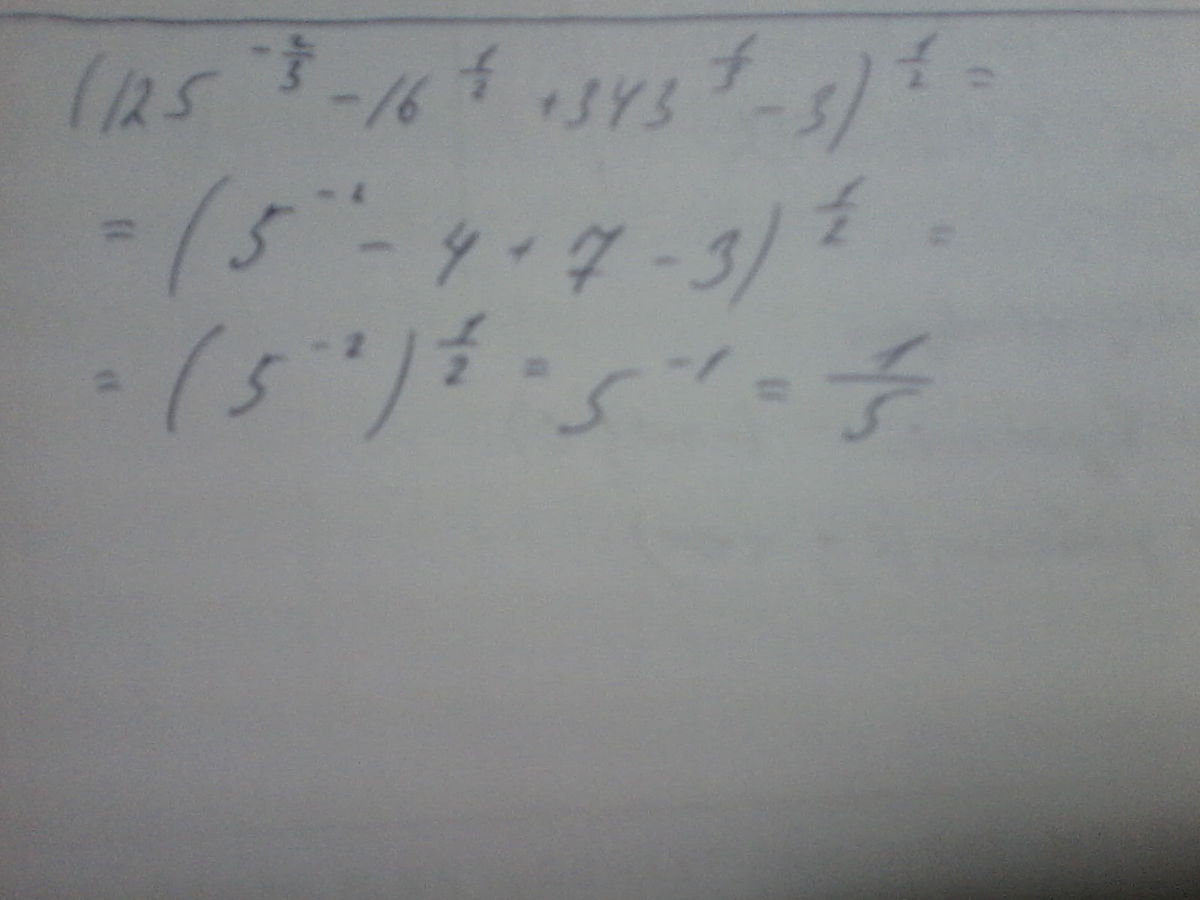 (125^{-2/3} - 16^{1/2} + 343^{1/3} - 3)^{1/2} =
= (5^{-2} - 4 + 7 - 3)^{1/2} =
= (5^{-2})^{1/2} = 5^{-1} = 1/5